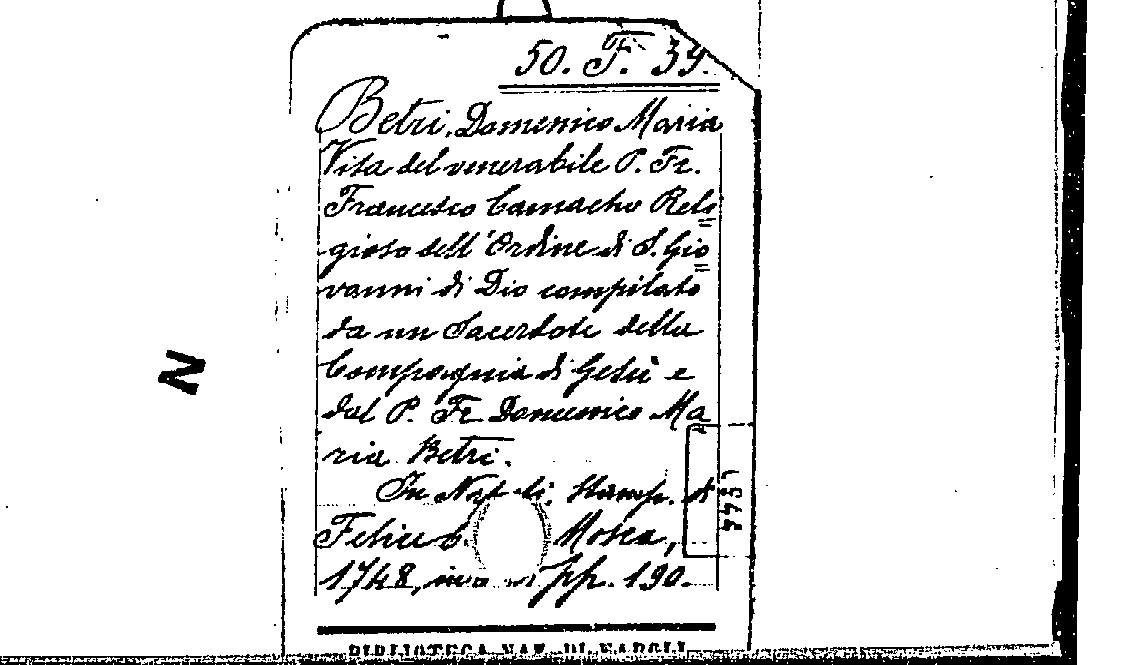 50. F. 39.
Betri, Domenico Maria
Vita del venerabile P. Fr.
Francesco Camacho Reli
gioso dell'Ordine di S. Gio
vanni di Dio compilato
da un Sacerdote della
Compagnia di Gesù e
dal P. Fr. Domenico Ma
ria Betri.
In Napoli. Stamp. di
Felice Mosca,
1748, in pp. 190.
BIBLIOTECA NAZ. DI NAPOLI
N